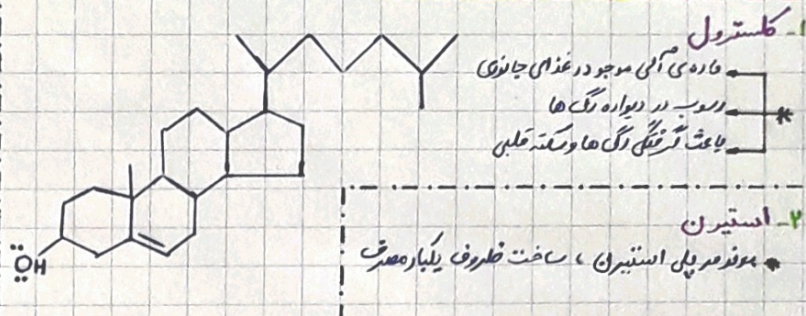 ۱- کلسترول
ماده‌ی آلی موجود در غذای جانوری
رسوب در دیواره رگ ها
باعث گرفتگی رگ ها و سکته قلبی
ÖH
۲- استیرن
* مونومر پلی استیرن ، ساخت ظروف یکبار مصرف